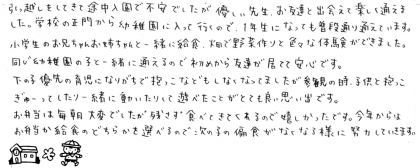 引っ越しをしてきて途中入園で不安でしたが優しい先生、お友達と出会えて楽しく通えま
した。学校の正門から幼稚園に入って行くので、1年生になっても普段通り通えています。
小学生のお兄ちゃんお姉ちゃんと一緒に給食、畑で野菜作りと色々な体験ができました。
同じ幼稚園の子と一緒に通えるので初めから友達が居てて安心です。
下の子優先の育児になりがちで抱っこなどもしなくなってましたが参観の時、子供と抱っこ
ぎゅーってしたり一緒に動いたりして遊べたことがとても良い思い出です。
お弁当は毎朝大変でしたが残さず食べてきてくれるので嬉しかったです。今年からは
お弁当か給食のどちらかを選べるので次の子の偏食がなくなる様に努力していきます。